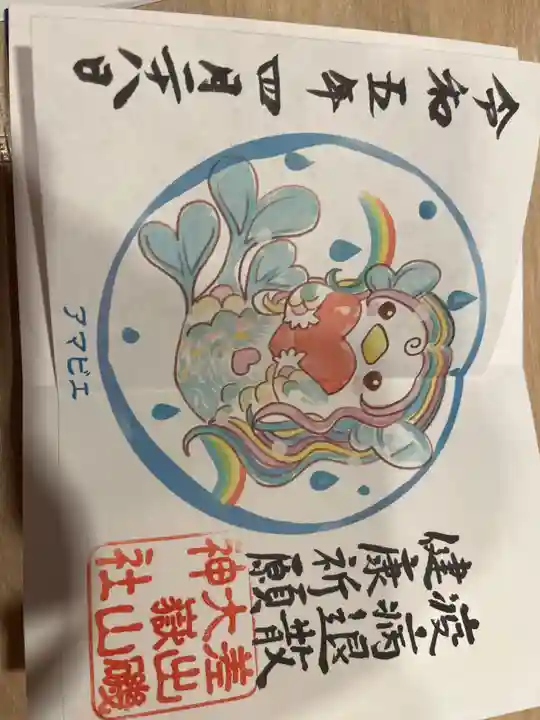 令和五年四月二十八日
アマビエ
疫病退散
健康祈願
差出磯
大嶽山
神社